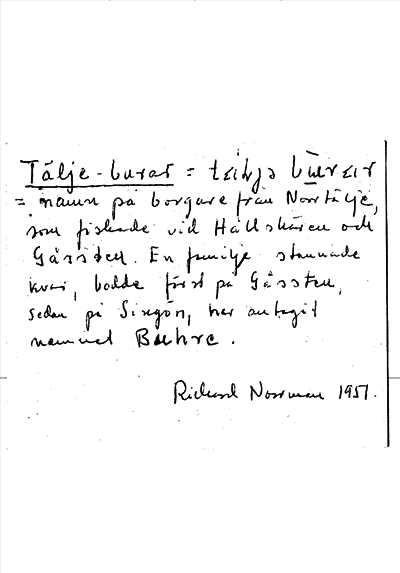 Tälje-burar =
= namn på borgare från Norrtälje,
som fiskade vid Hållskären och
Gåssten. En familje stannade
kvar, bodde först på Gåssten,
sedan på Singön, har antagit
namnet Buhre.
Richard Norrman 1951.